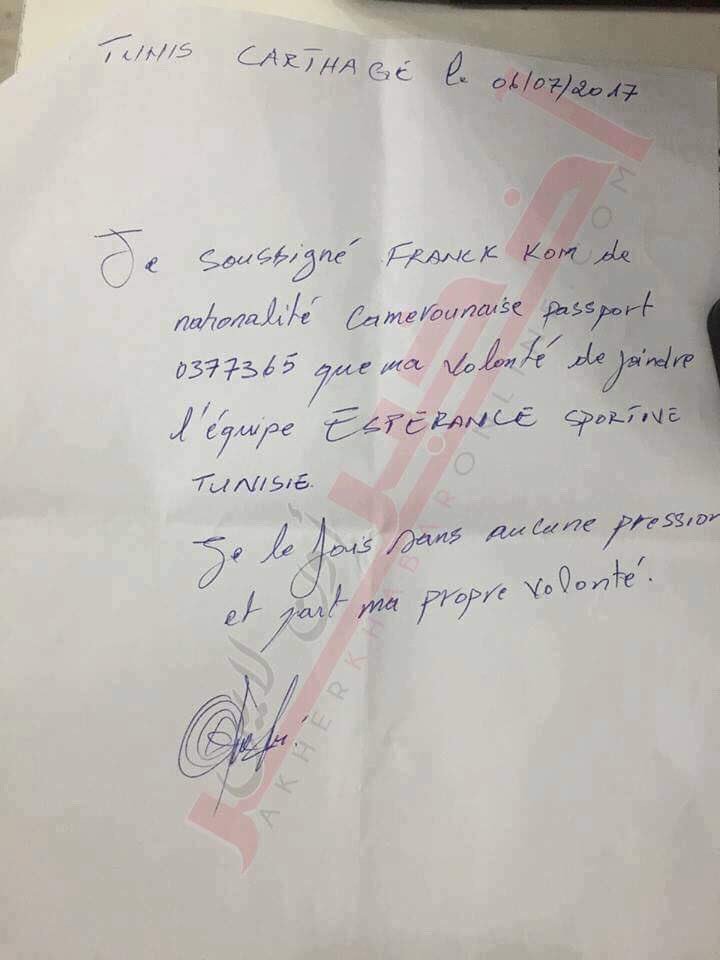 TUNIS CARTHAGE le 06/07/2017
Je soussigné FRANCK KOM de
nationalité Camerounaise passport
0377365 que ma volonté de joindre
l'équipe ESPERANCE SPORTIVE
TUNISIE.
Je le fais sans aucune pression
et part ma propre volonté.
آخر خبر أون لاين
AKHERKHABARONLINE.COM